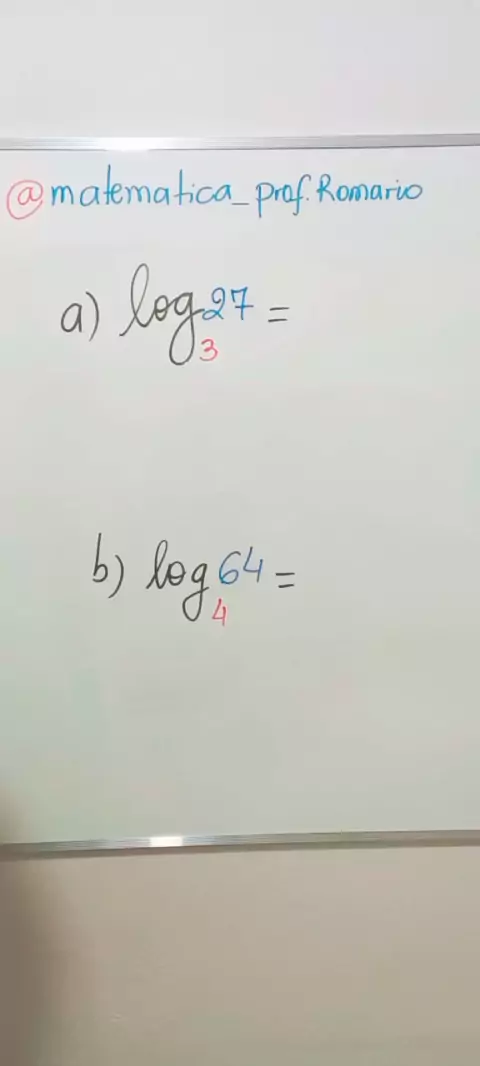 @matematica_prof.Romario
a) log₃27 =
b) log₄64 =